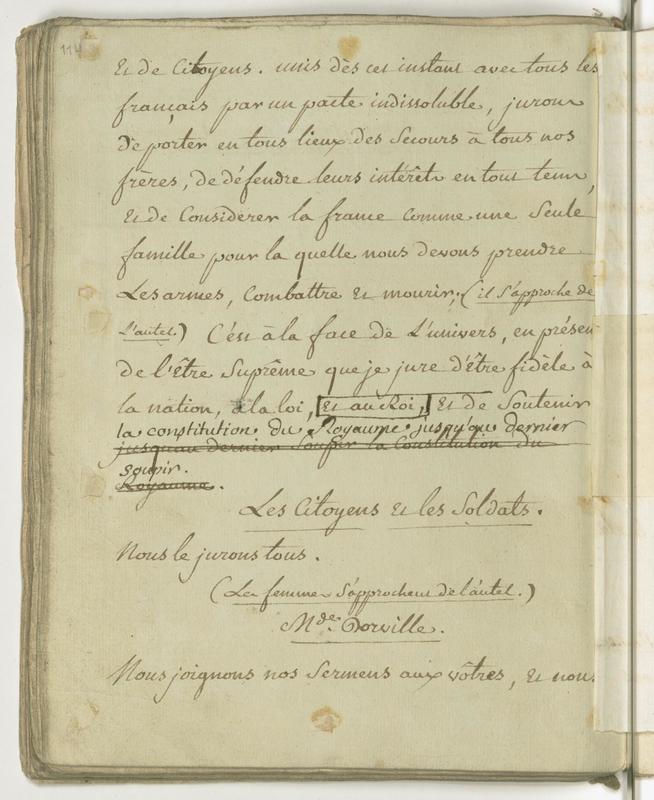 114
Et de Citoyens. unis dès cet instant avec tous les
français par un pacte indissoluble, jurons
de porter en tous lieux des Secours à tous nos
frères, de défendre leurs intérêts en tout tems,
Et de Considérer la france comme une Seule
famille pour la quelle nous devons prendre
Les armes, Combattre Et mourir; (il S'approche de
L'autel.) C'est à la face de L'univers, en présen
de l'Être Suprême que je jure d'Être fidèle à
la nation, à la loi, Et au Roi, Et de Soutenir
la constitution du Royaume jusqu'au dernier
jusquau dernier Soupir la Constitution du
soupir.
Royaume.
Les Citoyens Et les Soldats.
Nous le jurons tous.
(Les femmes S'approchent de l'autel.)
Mde. Dorville.
Nous joignons nos Sermens aux vôtres, Et nous